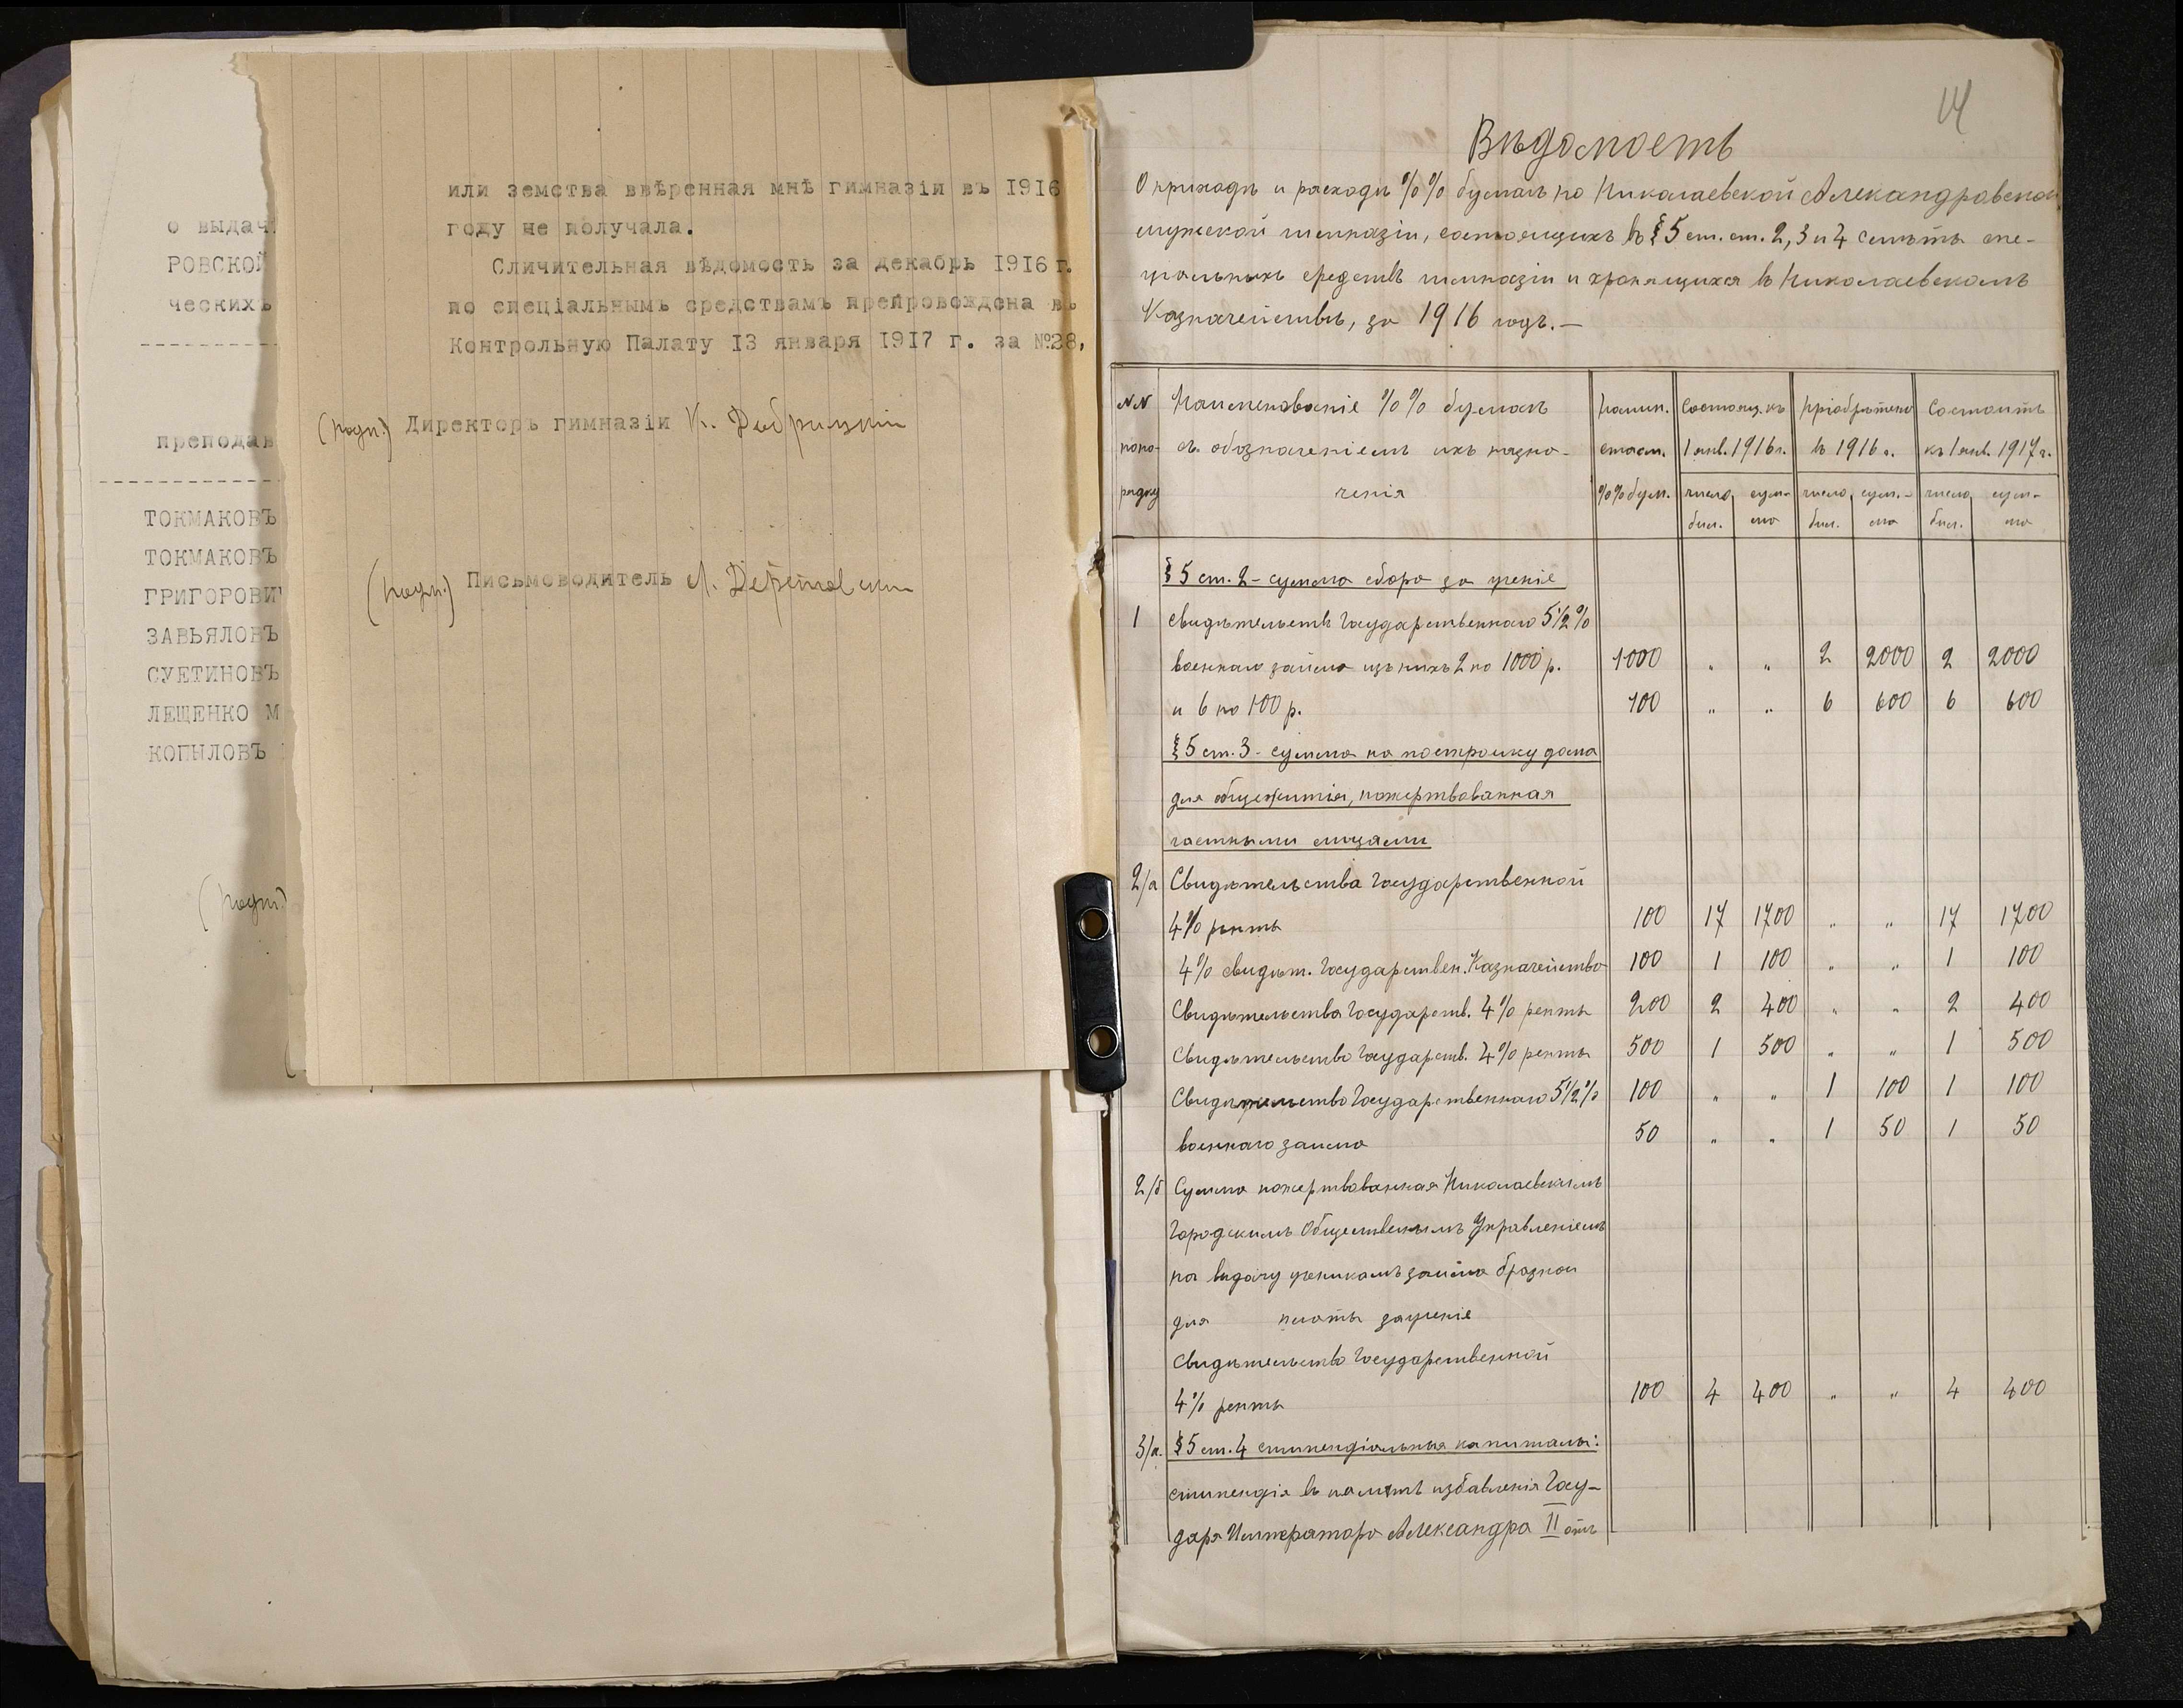 о выдач
РОВСКОЙ
ческихъ
преподав
ТОКМАКОВЪ
ТОКМАКОВЪ
ГРИГОРОВИ
ЗАВЬЯЛОВЪ
СУЕТИНОВЪ
ЛЕЩЕНКО М
КОПЫЛОВЪ
(подп.)
или земства ввѣренная мнѣ гимназіи въ 1916
году не получала.
Сличительная вѣдомость за декабрь 1916 г.
по спеціальнымъ средствамъ препровождена въ
Контрольную Палату 13 января 1917 г. за №28,
(подп.) Директоръ гимназіи К.
(подп.) Письмоводитель
14
Вѣдомость
О приходѣ и расходѣ %% бумагъ по Николаевской Александровской
мужской гимназіи, состоящихъ въ § 5 ст. ст. 2, 3 и 4 смѣты спе-
ціальныхъ средствъ гимназіи и хранящихся въ Николаевскомъ
Казначействѣ, за 1916 годъ.—
NN Наименованіе %% бумагъ Намин. Состоящ. къ Пріобрѣтено Состоитъ
по по- съ обозначеніемъ ихъ назна- стоим. 1 янв. 1916 г. въ 1916 г. къ 1 янв. 1917 г.
рядку ченія %% бум. число сум- число сум- число сум-
бил. ма бил. ма бил. ма
§ 5 ст. 2 - сумма сбора за ученіе
1 Свидѣтельств Государственнаго 5 1/2 %
военнаго займа изъ нихъ 2 по 1000 р. 1000 " " 2 2000 2 2000
и 6 по 100 р. 100 " " 6 600 6 600
§ 5 ст. 3 - сумма на постройку дома
для общежитія, пожертвованная
частными лицами
2/а Свидѣтельства Государственной
4% ренты 100 17 1700 " " 17 1700
4% свидѣт. Государствен. Казначейства 100 1 100 " " 1 100
Свидѣтельства Государств. 4% ренты 200 2 400 " " 2 400
Свидѣтельство Государств. 4% ренты 500 1 500 " " 1 500
Свидѣтельство Государственнаго 5 1/2 % 100 " " 1 100 1 100
военнаго займа 50 " " 1 50 1 50
2/б Сумма пожертвованная Николаевскимъ
Городскимъ Общественымъ Управленіемъ
на выдачу ученикамъ займо
для платы за ученіе
Свидѣтельство Государственной
4% ренты 100 4 400 " " 4 400
3/а. § 5 ст. 4 стипендіальные капиталы:
стипендія въ память избавленія Госу-
даря Императора Александра II отъ